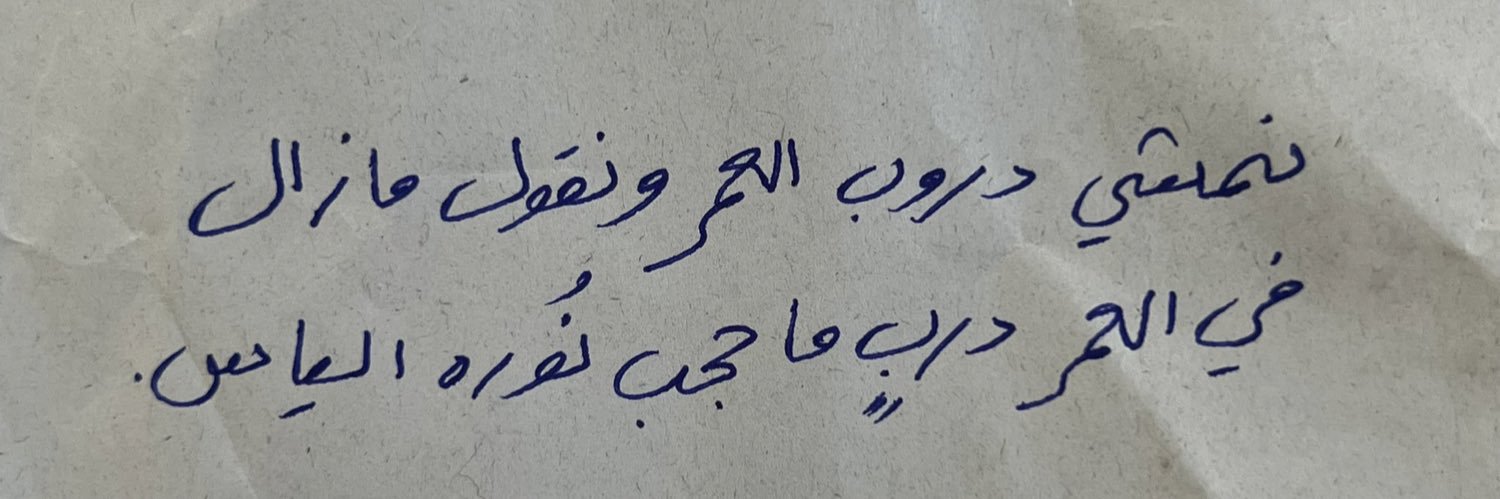 نمشي دروب العمر ونقول مازال
في العمر دربٍ ما حجب نُوره الياس.